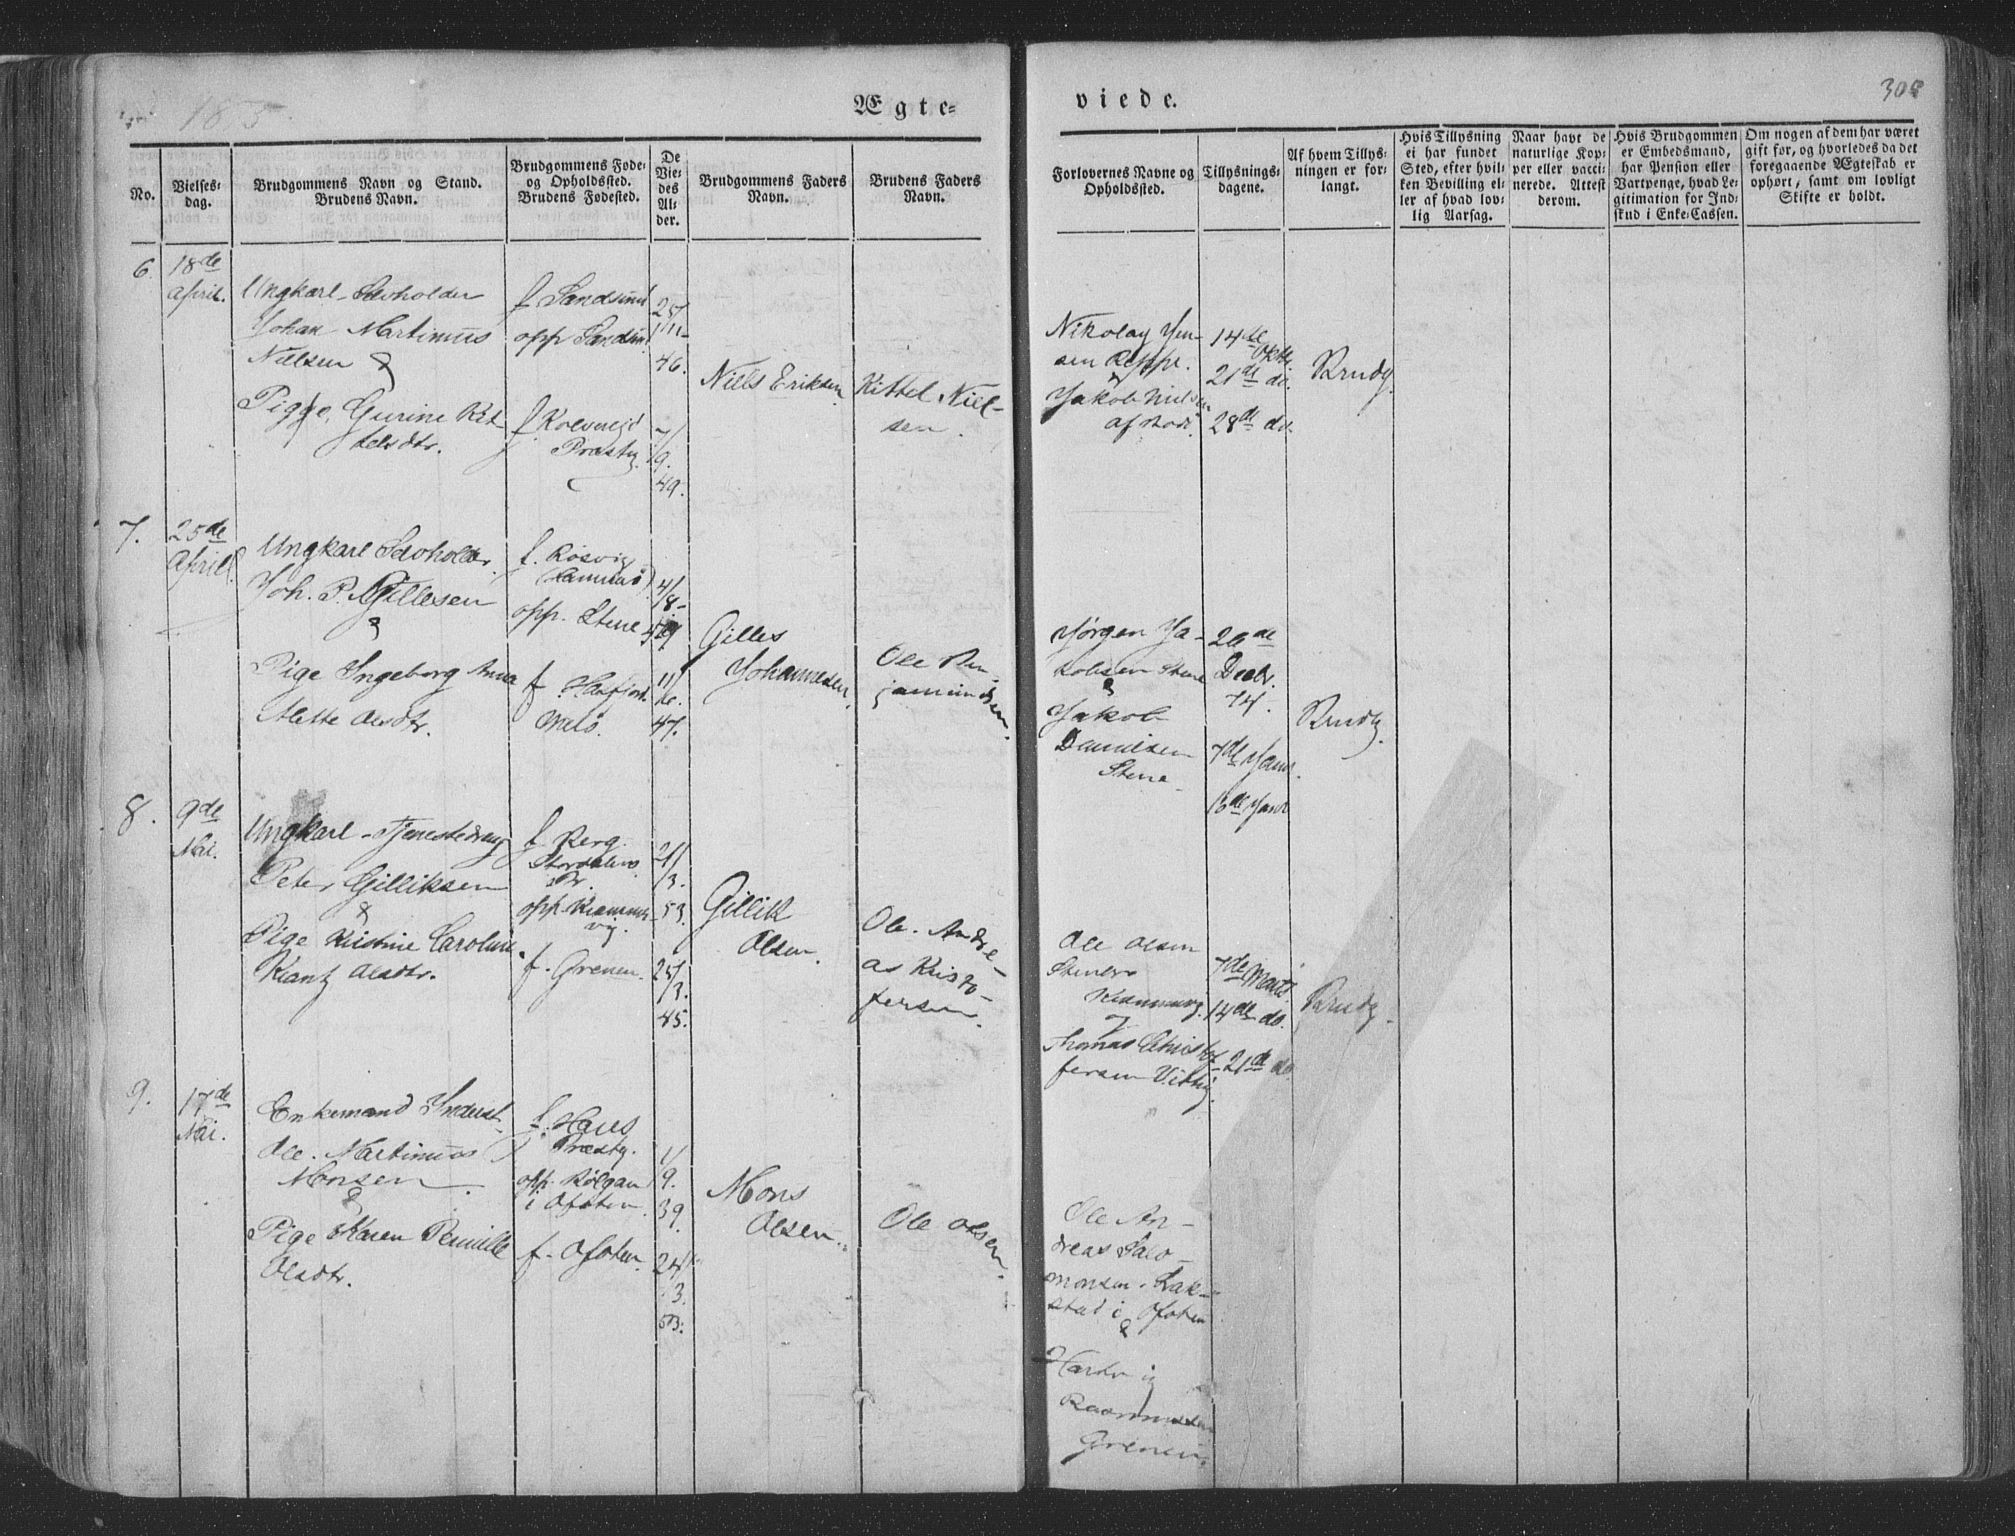 1875.
Ægte-
viede.
308
No.
Vielses-
dag.
Brudgommens Navn og Stand.
Brudens Navn.
Brudgommens Føde-
og Opholdssted.
Brudens Fødested.
De
Vie-
des
Al-
der.
Brudgommens Faders
Navn.
Brudens Faders
Navn.
Forlovernes Navne og
Opholdssted.
Tillysnings-
dagene.
Af hvem Tillys-
ningen er for-
langt.
Hvis Tillysning
ei har fundet
Sted, efter hvil-
ken Bevilling el-
ler af hvad lov-
lig Aarsag.
Naar havt de
naturlige Kop-
per eller vacci-
nerede. Attest
derom.
Hvis Brudgommen
er Embedsmand,
har Pension eller
Vartpenge, hvad Le-
gitimation for Ind-
skud i Enke-Cassen.
Om nogen af dem har været
gift før, og hvorledes da det
foregaaende Ægteskab er
ophørt, samt om lovligt
Skifte er holdt.
6.
18de
April.
Ungkarl
Johan Martinus
Nielsen &
Pige, Gurine Kit-
telsdtr.
f Sandsund
opp Sandsun
f Kolvereid
Præstg.
25/
11-
46.
7/
9.
49.
Niels Eriksen
Kittel Niel-
sen.
Nikolay Jen-
sen
&
Jakob Nielsen
af Bodø.
14de Oktbr.
21de do.
28de do.
Brudg.
7.
25de
April.
Ungkarl
Joh. P. Gillesen
&
Pige Ingeborg Anna
Alette Olsdtr.
f. Røsvig
opp. Stene
f
4/
8-
11/
47.
Gilles
Johannesen.
Ole Ben-
jaminsen.
Jørgen Ja-
kobsen Stene
&
Jakob
Danielsen
Stene
26de
Decbr.
74.
7de Janr.
13de Janr
Brudg.
8.
9de
Mai.
Ungkarl - Tjenestedreng
Peter Gilliksen
&
Pige Kristine Caroline
Krantz Olsdtr.
f. Berg.
Stordalens
Pr.
opp.
vig.
f. Grenen.
21/
3.
53.
25/
3.
45.
Gillik
Olsen.
Ole. Andre-
as Kristo-
fersen.
Ole Olsen
og
Thomas Christof-
fersen
7de Marts
14de do.
21de do.
Brudg.
9.
17de
Mai.
Enkemand Inderst
Ole. Martinus
Monsen.
&
Pige Karen Pernille
Olsdtr.
f. Haus
Præstg.
opp.
i Ofoten.
f. Ofoten.
1/
9.
39.
24/
3.
53.
Mons
Olsen.
Ole Olsen.
Ole An-
dreas Salo-
monsen.
i Ofoten
&
Hartvig
Rasmussen
Grenen.